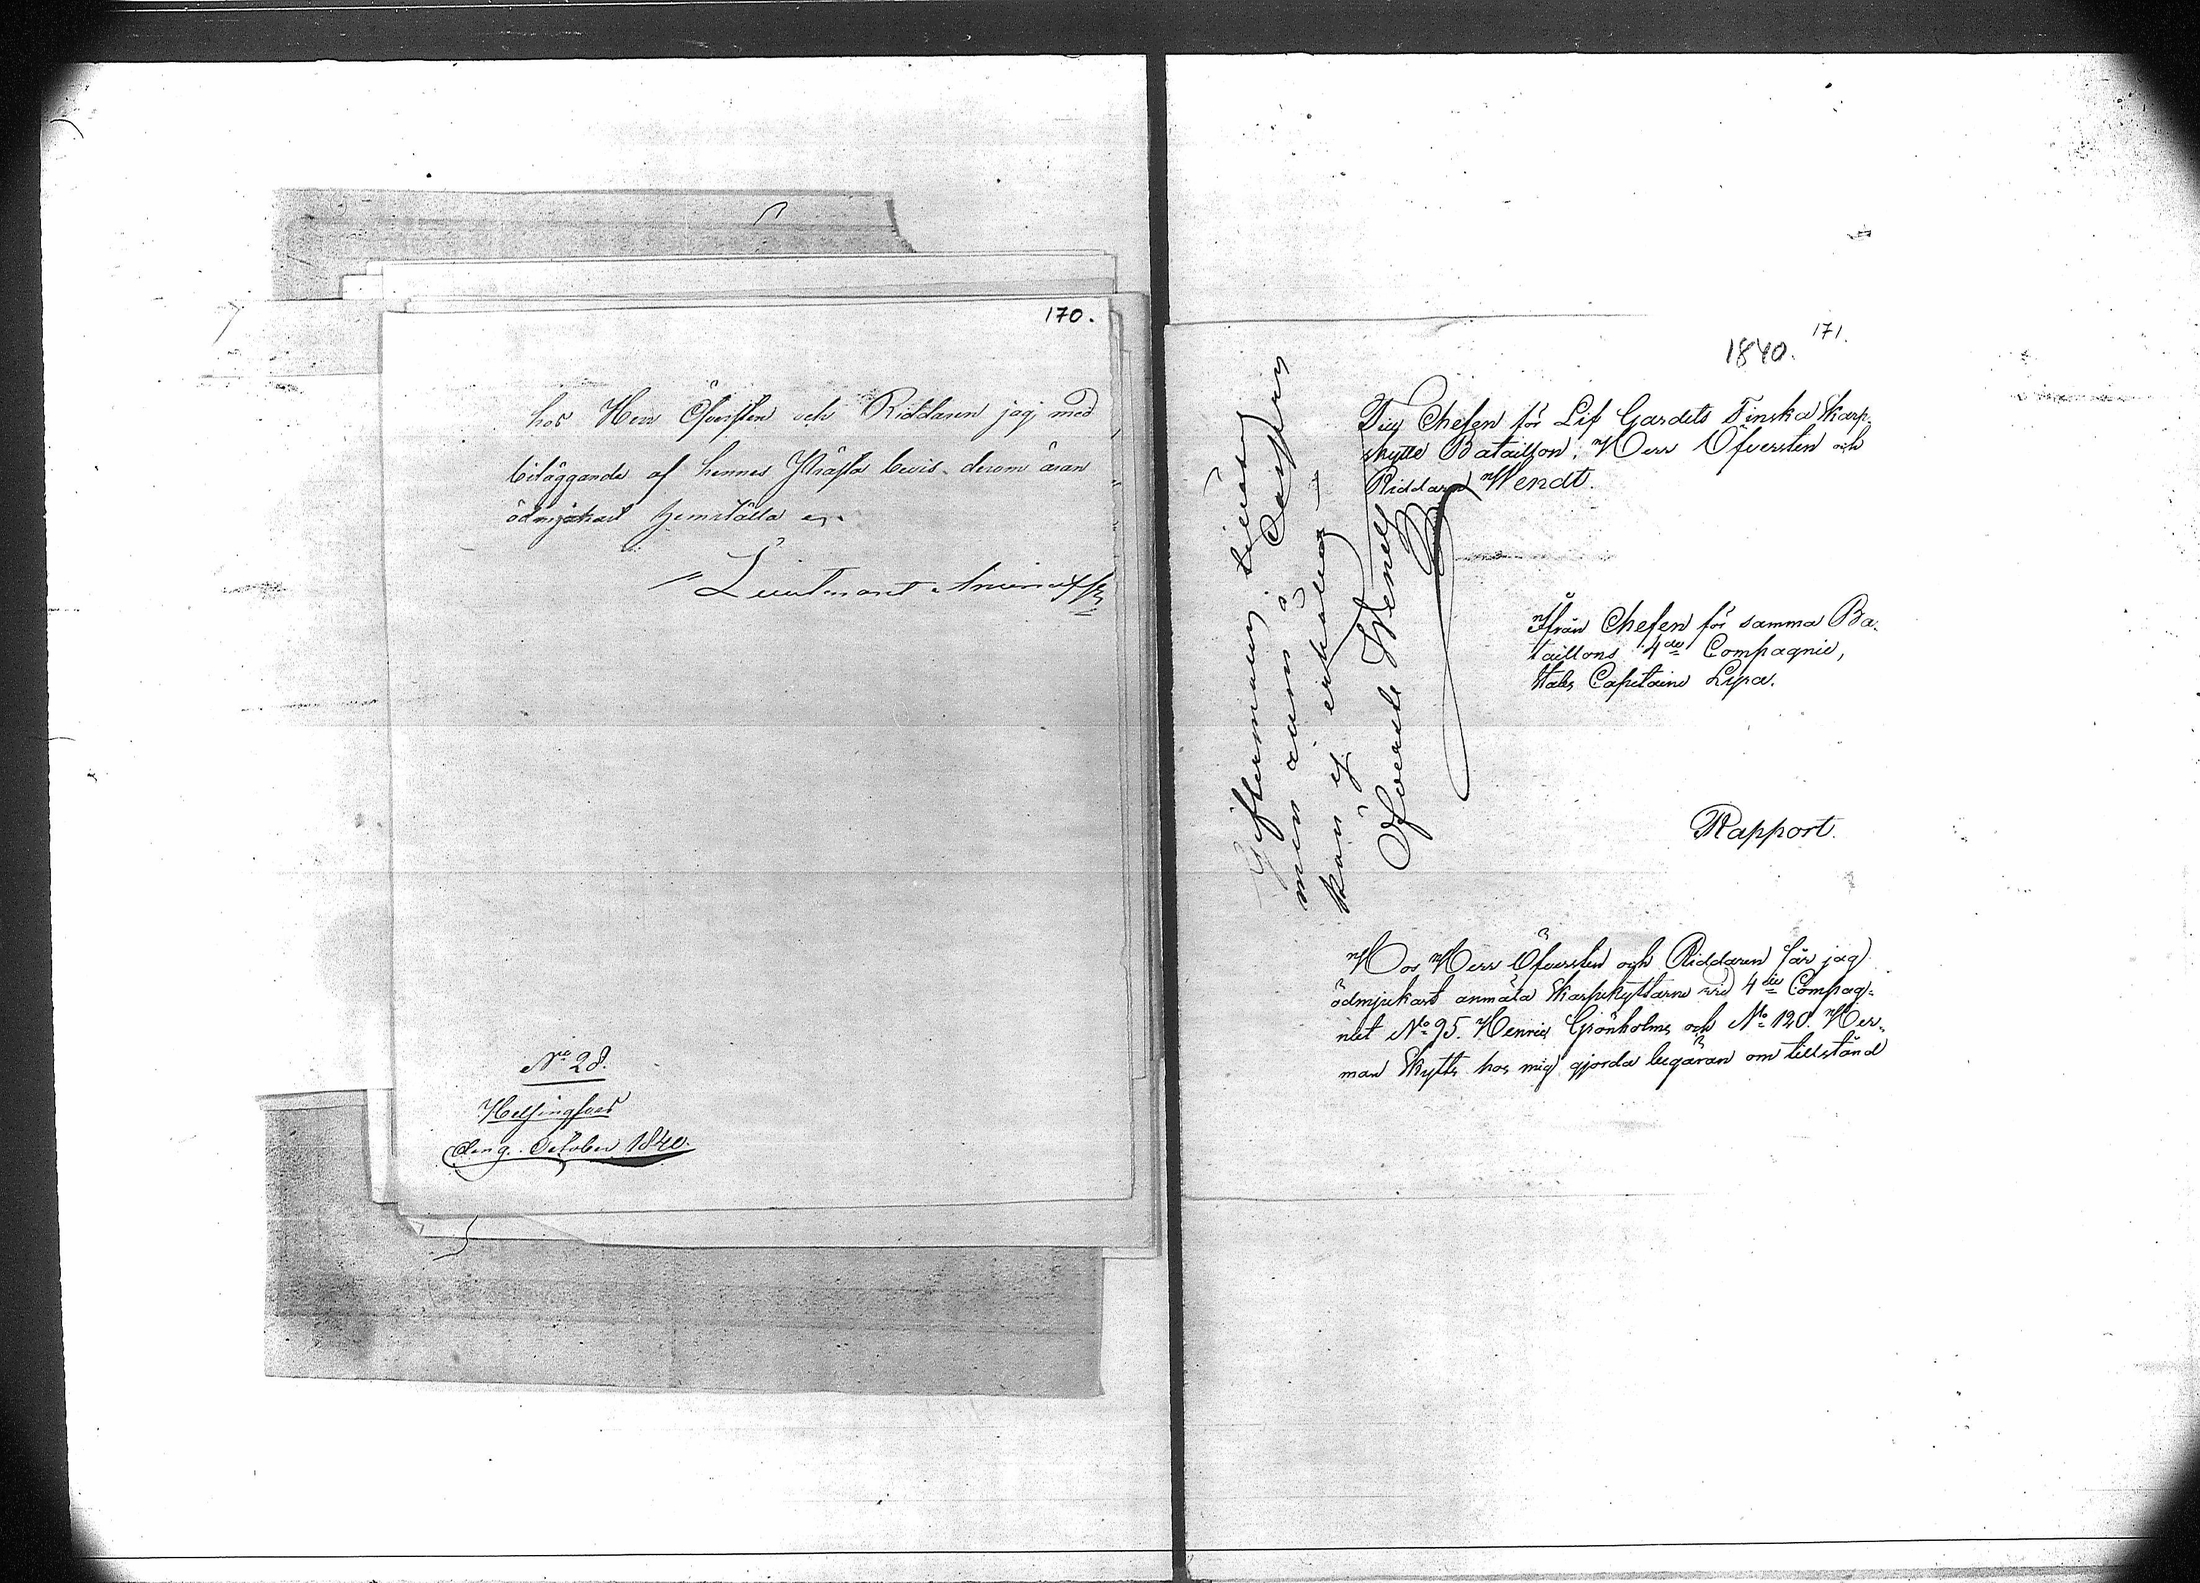 170.
hos Herr Öfversten och Riddaren jag, med
biläggande af hennes Prästa bevis, derom äran
ödmjukast hemställa
Lieutenant
No 28.
Helsingfors
den 9. October 1840.
171.
1840.
Till Chefen för Lif Gardets Finska Skarp-
skytte Bataillon, Herr Öfversten och
Riddaren Wendt.
Ifrån Chefen för samma Ba-
taillons 4de Compagnie,
Stabs Capitaine Lyra.
Rapport.
Hos Herr Öfversten och Riddaren får jag
ödmjukast anmäla Skarpskyttarne vid 4de Compag-
niet No 95. Henric Grönholms och No 120. Her-
man Skytts hos mig gjorda begäran om tillstånd
Giftermåls
men
kan ej erhållas
Öfverste Wendt